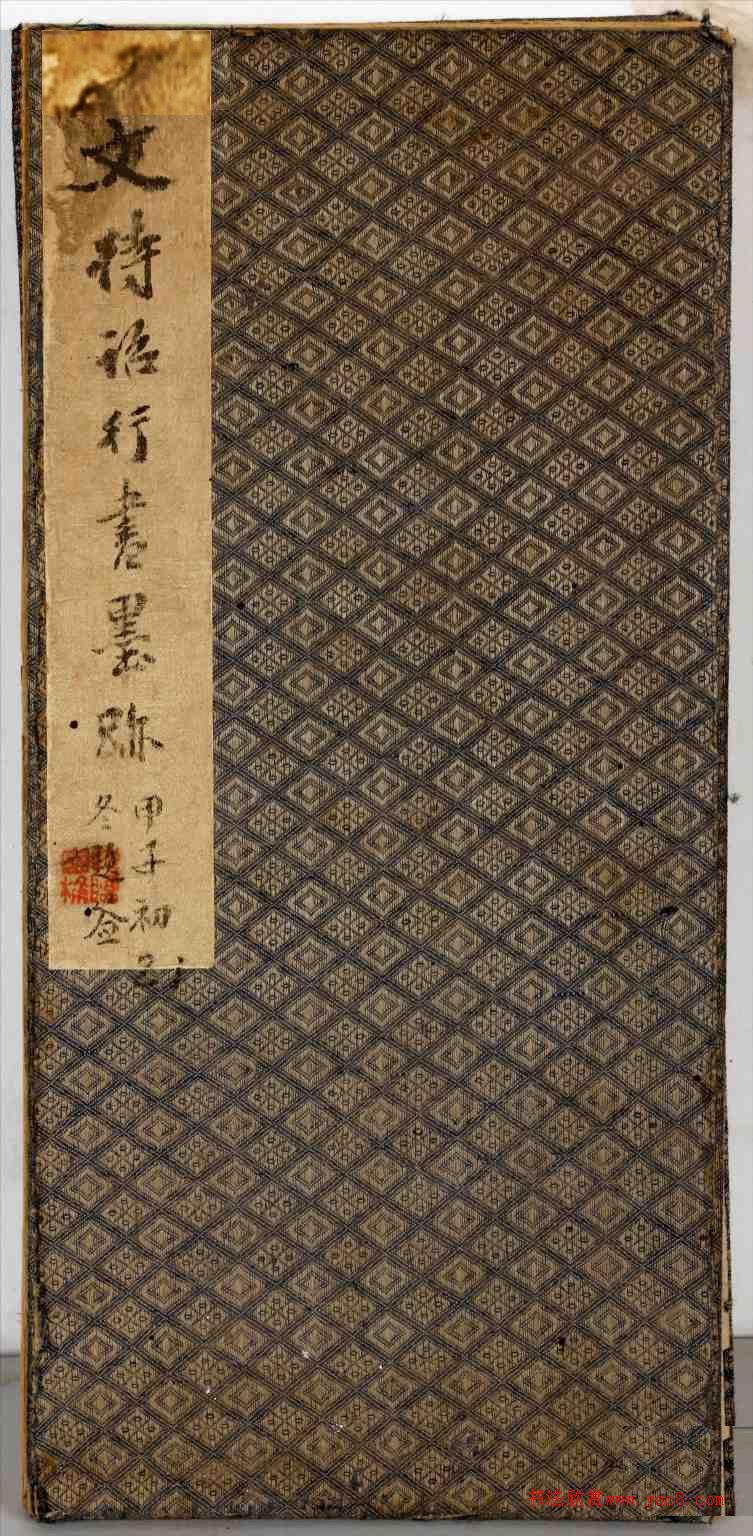 文待詔行書墨跡
甲子初
冬題簽
书法欣赏www.yac8.com